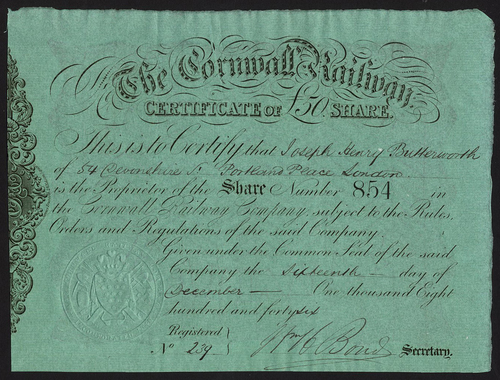 The Cornwall Railway.
CERTIFICATE OF £50 SHARE.
This is to Certify that Joseph Henry Butterworth
of 54 Devonshire St. Portland Place London
is the Proprietor of the Share Number 854 in
the Cornwall Railway Company, subject to the Rules,
Orders and Regulations of the said Company.
Given under the Common Seal of the said
Company the Sixteenth day of
December One thousand Eight
hundred and fortysix
Registered
No 239
Wm H Bond Secretary.